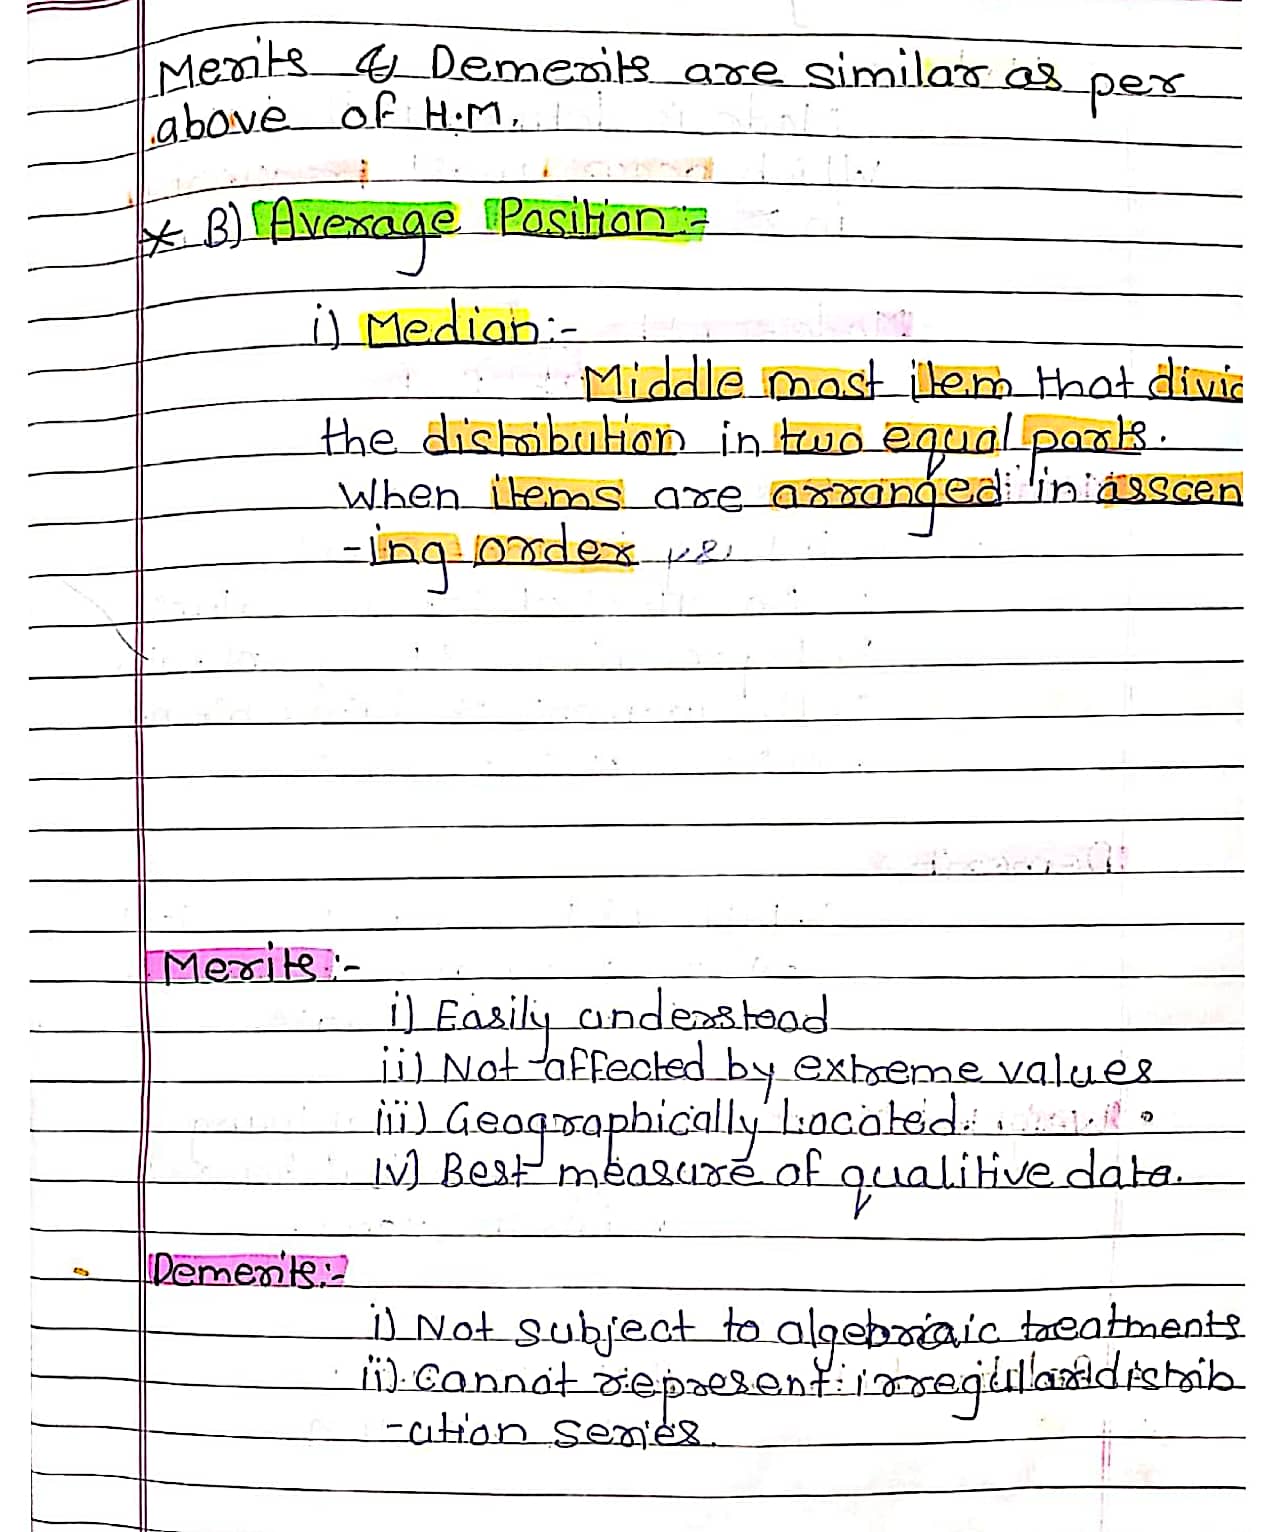 Merits & Demerits are similar as per
above of H.M.
* B) Average Position :-
i) Median :-
Middle most item that divid
the distribution in two equal parts.
When items are arranged in asscen
-ing order
Merits :-
i) Easily understood
ii) Not affected by extreme values
iii) Geographically Located.
iv) Best measure of qualitive data.
Demerits :-
i) Not subject to algebraic treatments
ii) Cannot represent irregular distrib
-ution series.